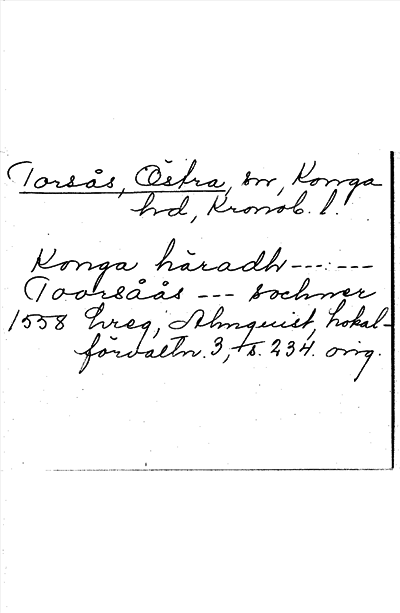 Torsås, Östra, sn, Konga
hd, Kronob. l.
Konga häradh --- ---
Toorsåås --- sochner
1558 hreg; Almquist, Lokal-
förvaltn. 3, s. 234. orig.